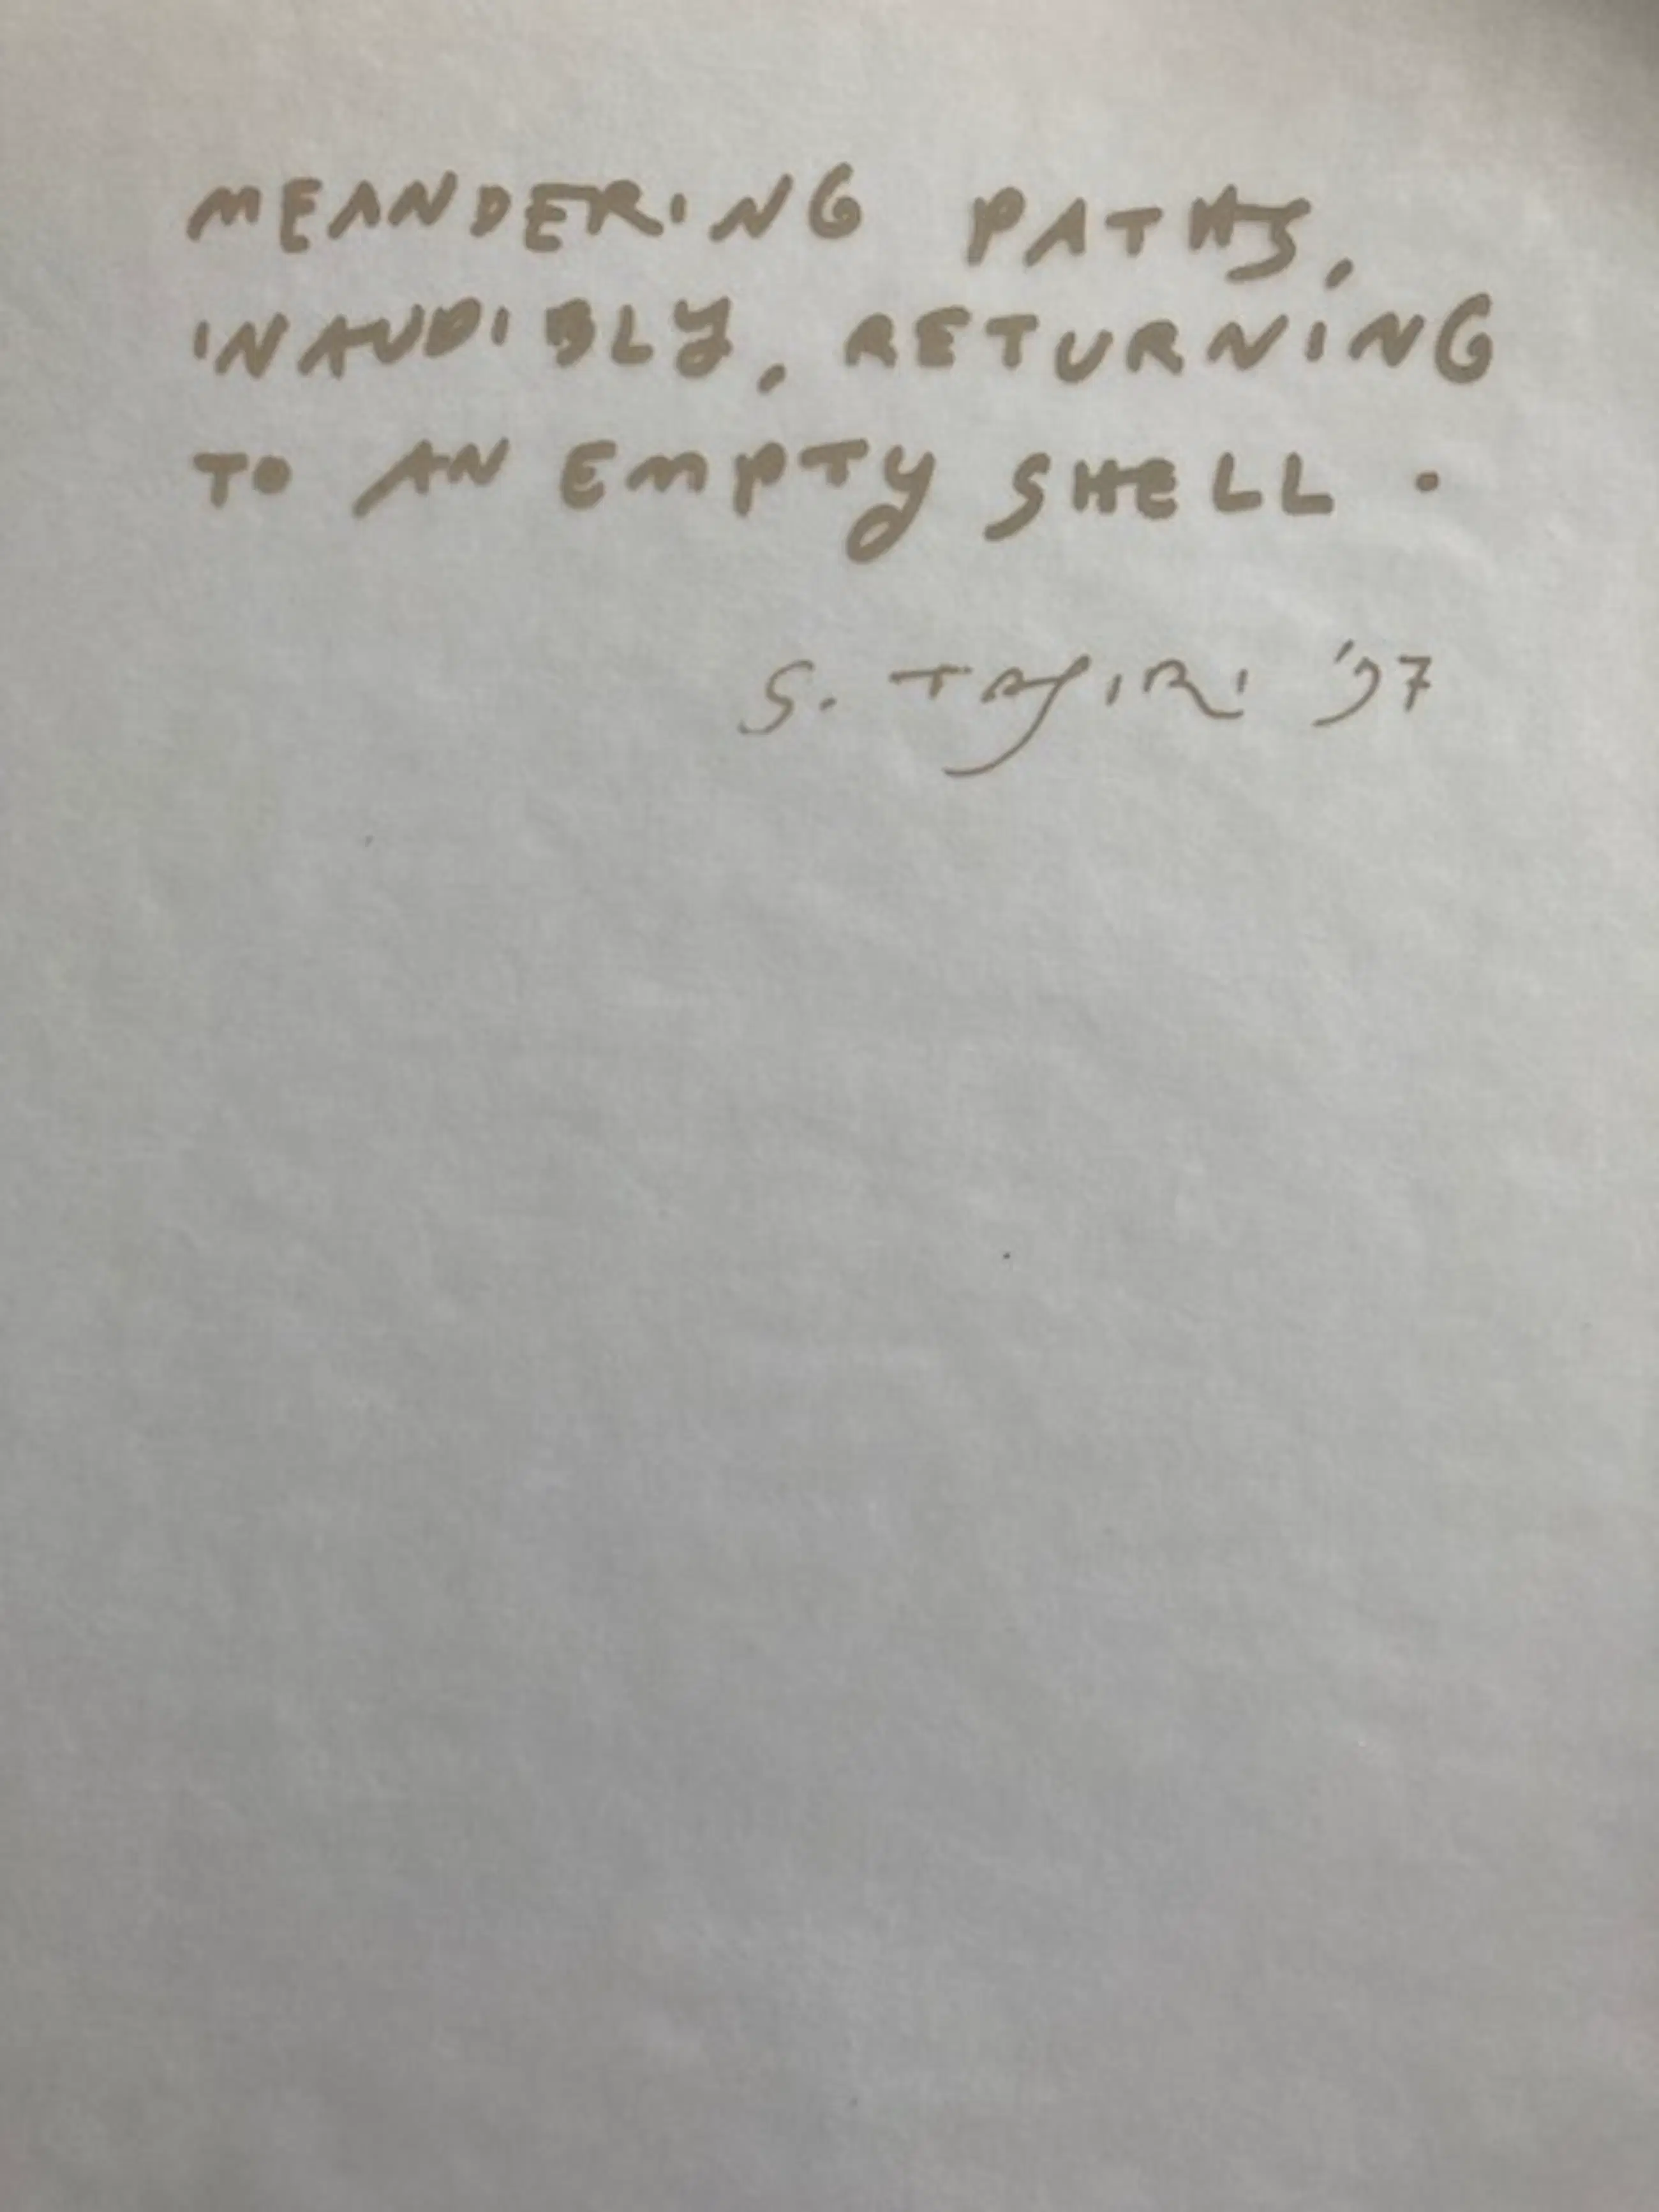 MEANDERING PATHS,
INAUDIBLY, RETURNING
TO AN EMPTY SHELL.
S. TAJIRI '97